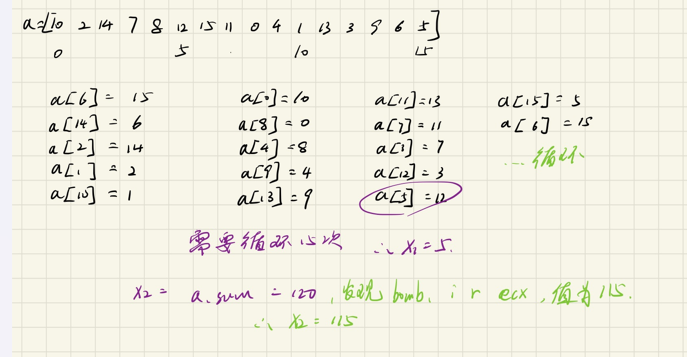 a=[10 2 14 7 8 12 15 11 0 4 1 13 3 9 6 5]
0 5 10 15
a[6]= 15
a[14] = 6
a[2] =14
a[1] = 2
a[10] = 1
a[0]=10
a[8]=0
a[4]=8
a[9]=4
a[13]=9
a[11]=13
a[7]=11
a[3]=7
a[12]=3
a[5]=12
a[15]=5
a[6] =15
...循环
需要循环15次 ∴x₁=5.
x₂= a.sum = 120 ,发现bomb. i r ecx ,值为115.
∴ x₂=115